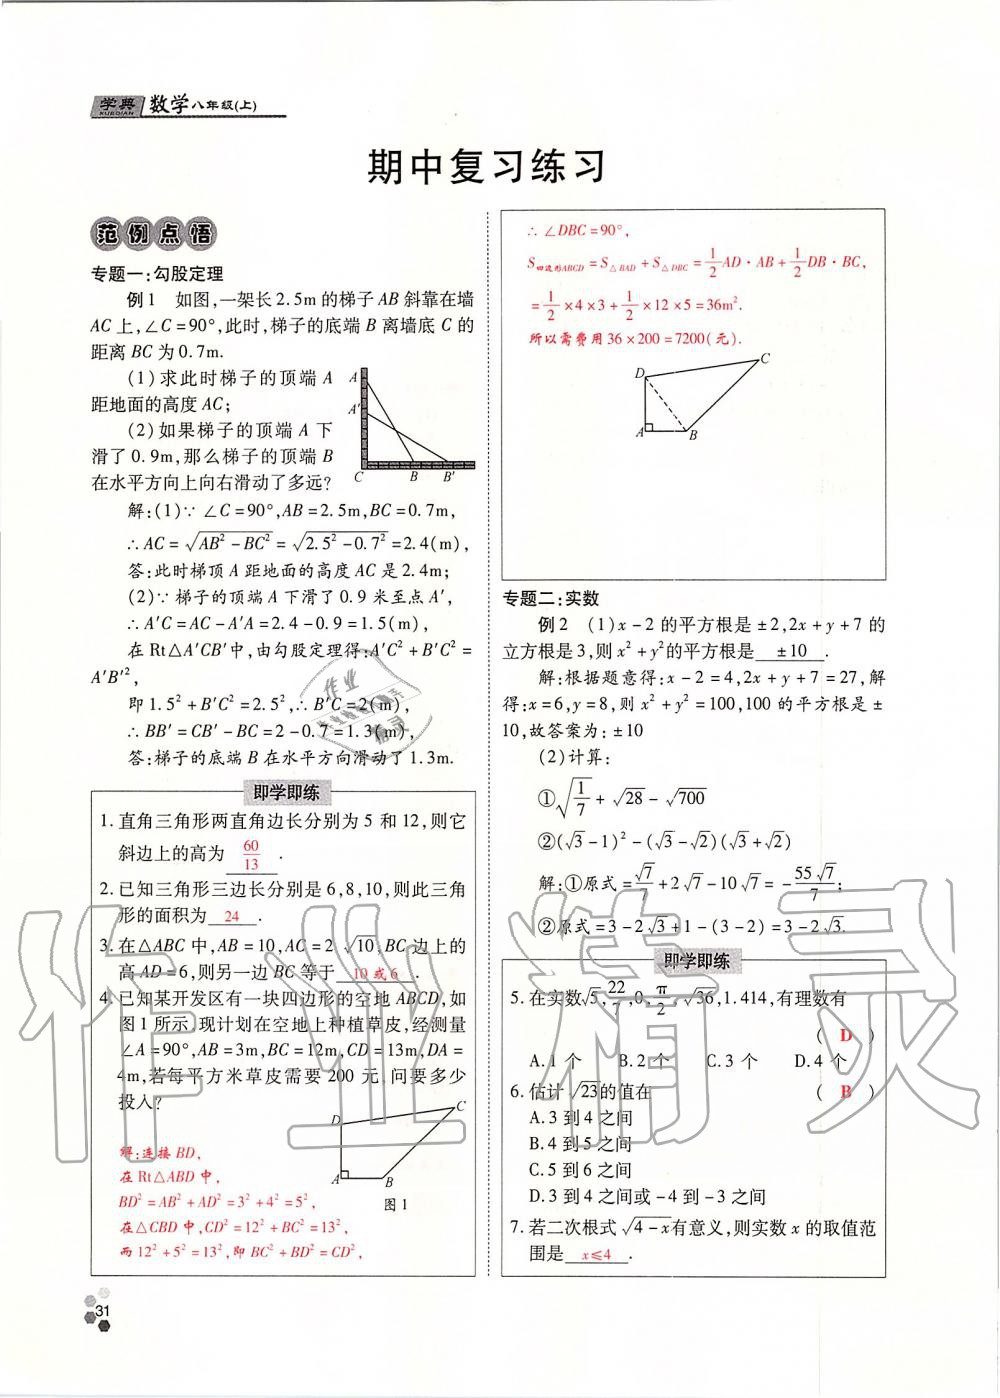 学典 数学八年级(上)
XUEDIAN
期中复习练习
范例点悟
专题一:勾股定理
例1 如图,一架长2.5m的梯子AB斜靠在墙
AC上,∠C=90°,此时,梯子的底端B离墙底C的
距离BC为0.7m.
(1)求此时梯子的顶端A
距地面的高度AC;
(2)如果梯子的顶端A下
滑了0.9m,那么梯子的顶端B
在水平方向上向右滑动了多远?
A
A′
C B B′
解:(1)∵∠C=90°,AB=2.5m,BC=0.7m,
∴AC=√(AB²-BC²)=√(2.5²-0.7²)=2.4(m),
答:此时梯顶A距地面的高度AC是2.4m;
(2)∵梯子的顶端A下滑了0.9米至点A′,
∴A′C=AC-A′A=2.4-0.9=1.5(m),
在Rt△A′CB′中,由勾股定理得:A′C²+B′C²=
A′B′²,
即1.5²+B′C²=2.5²,∴B′C=2(m),
∴BB′=CB′-BC=2-0.7=1.3(m),
答:梯子的底端B在水平方向滑动了1.3m.
即学即练
1. 直角三角形两直角边长分别为5和12,则它
斜边上的高为 60/13 .
2. 已知三角形三边长分别是6,8,10,则此三角
形的面积为 24 .
3. 在△ABC中,AB=10,AC=2√10,BC边上的
高AD=6,则另一边BC等于 10或6 .
4. 已知某开发区有一块四边形的空地ABCD,如
图1所示,现计划在空地上种植草皮,经测量
∠A=90°,AB=3m,BC=12m,CD=13m,DA=
4m,若每平方米草皮需要200元,问要多少
投入?
D C
A B
图1
解:连接BD,
在Rt△ABD中,
BD²=AB²+AD²=3²+4²=5²,
在△CBD中,CD²=12²+BC²=13²,
而12²+5²=13²,即BC²+BD²=CD²,
31
∴∠DBC=90°,
S四边形ABCD=S△BAD+S△DBC=1/2AD·AB+1/2DB·BC,
=1/2×4×3+1/2×12×5=36m².
所以需费用36×200=7200(元).
D C
A B
专题二:实数
例2 (1)x-2的平方根是±2,2x+y+7的
立方根是3,则x²+y²的平方根是 ±10 .
解:根据题意得:x-2=4,2x+y+7=27,解
得:x=6,y=8,则x²+y²=100,100的平方根是±
10,故答案为:±10
(2)计算:
①√(1/7)+√28-√700
②(√3-1)²-(√3-√2)(√3+√2)
解:①原式=√7/7+2√7-10√7=-55√7/7;
②原式=3-2√3+1-(3-2)=3-2√3.
即学即练
5. 在实数√5,22/7,0,π/2,√36,1.414,有理数有
( D )
A.1个 B.2个 C.3个 D.4个
6. 估计√23的值在 ( B )
A.3到4之间
B.4到5之间
C.5到6之间
D.3到4之间或-4到-3之间
7. 若二次根式√(4-x)有意义,则实数x的取值范
围是 x≤4 .
作业精灵